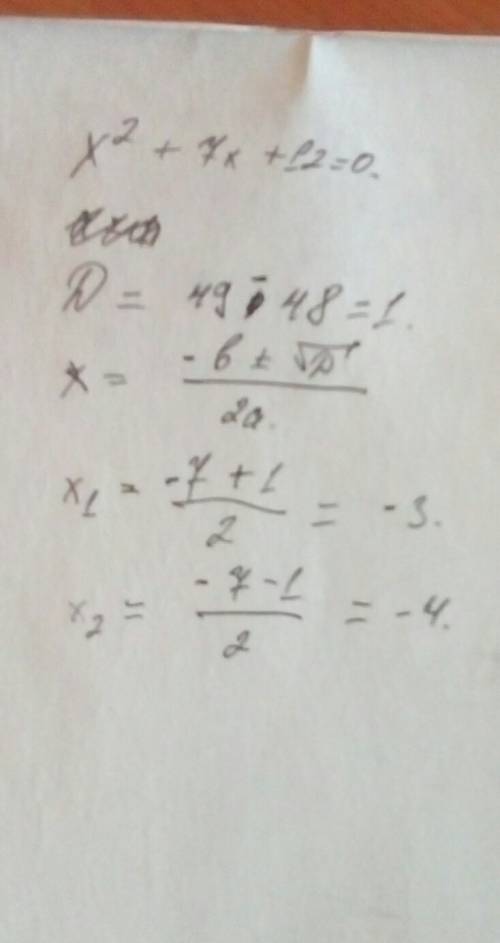 x² + 7x + 12 = 0.
D = 49 - 48 = 1.
x = (-b ± √D) / 2a.
x₁ = (-7 + 1) / 2 = -3.
x₂ = (-7 - 1) / 2 = -4.